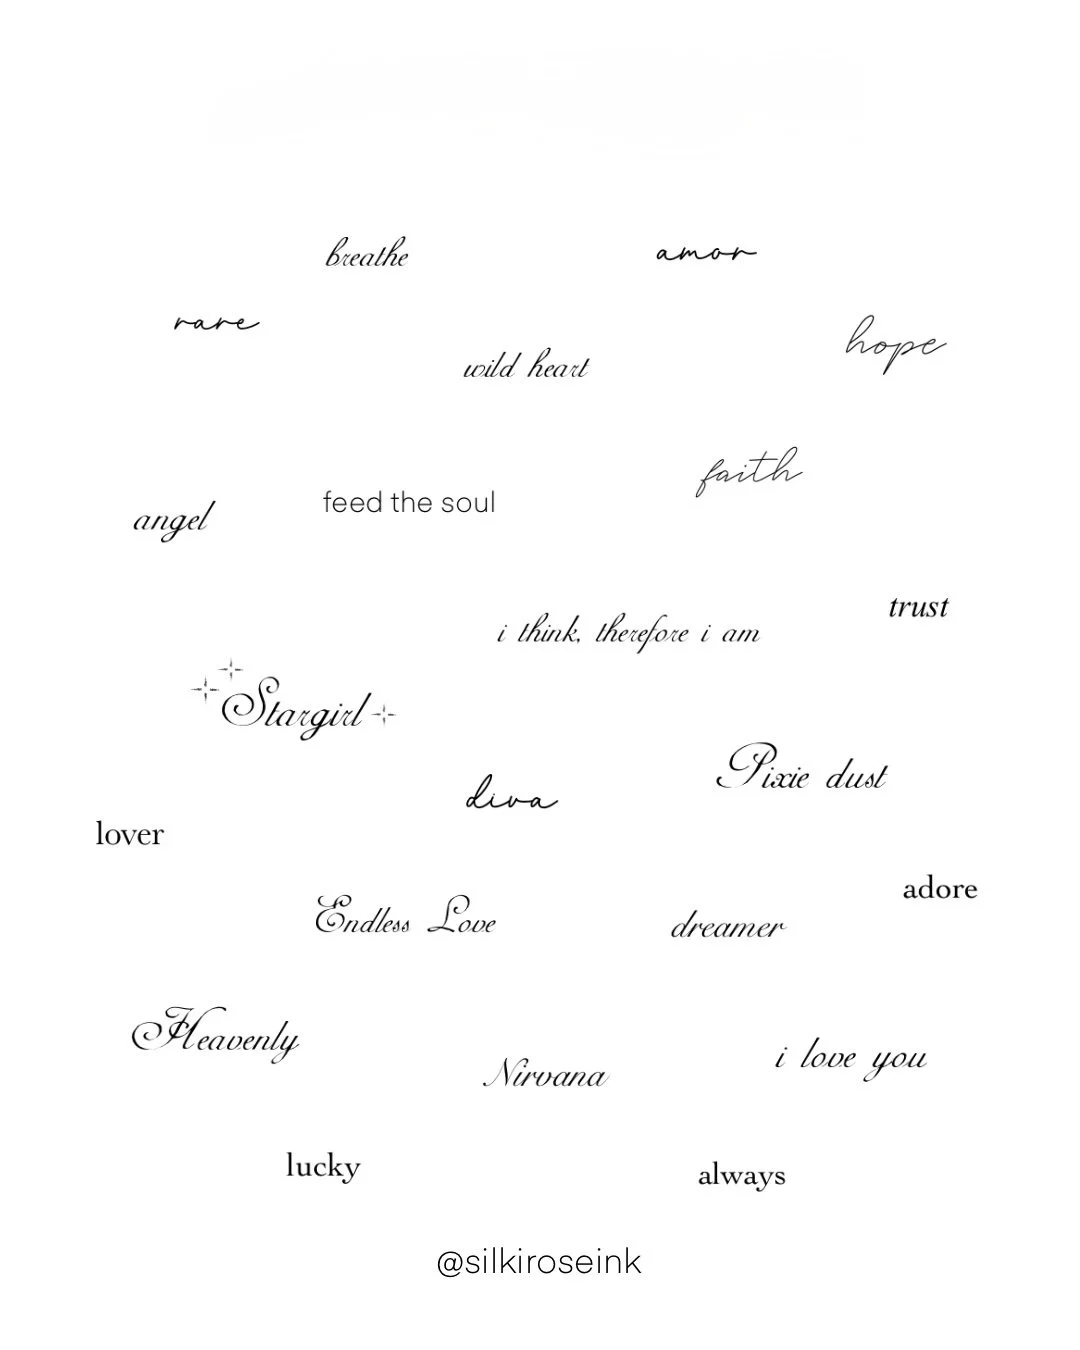 breathe
amor
rare
hope
wild heart
faith
feed the soul
angel
trust
i think, therefore i am
Stargirl
Pixie dust
diva
lover
adore
Endless Love
dreamer
Heavenly
i love you
Nirvana
lucky
always
@silkiroseink